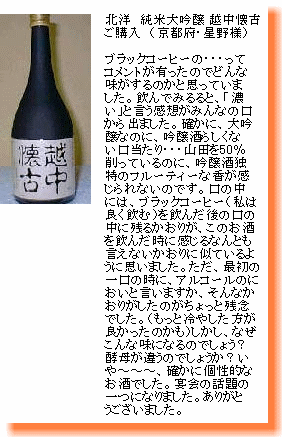 北洋　純米大吟醸 越中懐古
ご購入　（京都府・星野様）
ブラックコーヒーの・・・って
コメントが有ったのでどんな
味がするのかと思っていま
した。飲んでみるると、「濃
い」と言う感想がみんなの口
から出ました。確かに、大吟
醸なのに、吟醸酒らしくな
い口当たり・・・山田を50%
削っているのに、吟醸酒独
特のフルーティーな香が感
じられないのです。口の中
には、ブラックコーヒー（私は
良く飲む）を飲んだ後の口の
中に残るかおりが、このお酒
を飲んだ時に感じるなんとも
言えないかおりに似ているよ
うに思いました。ただ、最初の
一口の時に、アルコールのに
おいと言いますか、そんなか
おりがしたのがちょっと残念
でした。（もっと冷やした方が
良かったのかも）しかし、なぜ
こんな味になるのでしょう？
酵母が違うのでしょうか？い
や～～～、確かに個性的な
お酒でした。宴会の話題の
一つになりました。ありがと
うございました。
越中
懐古